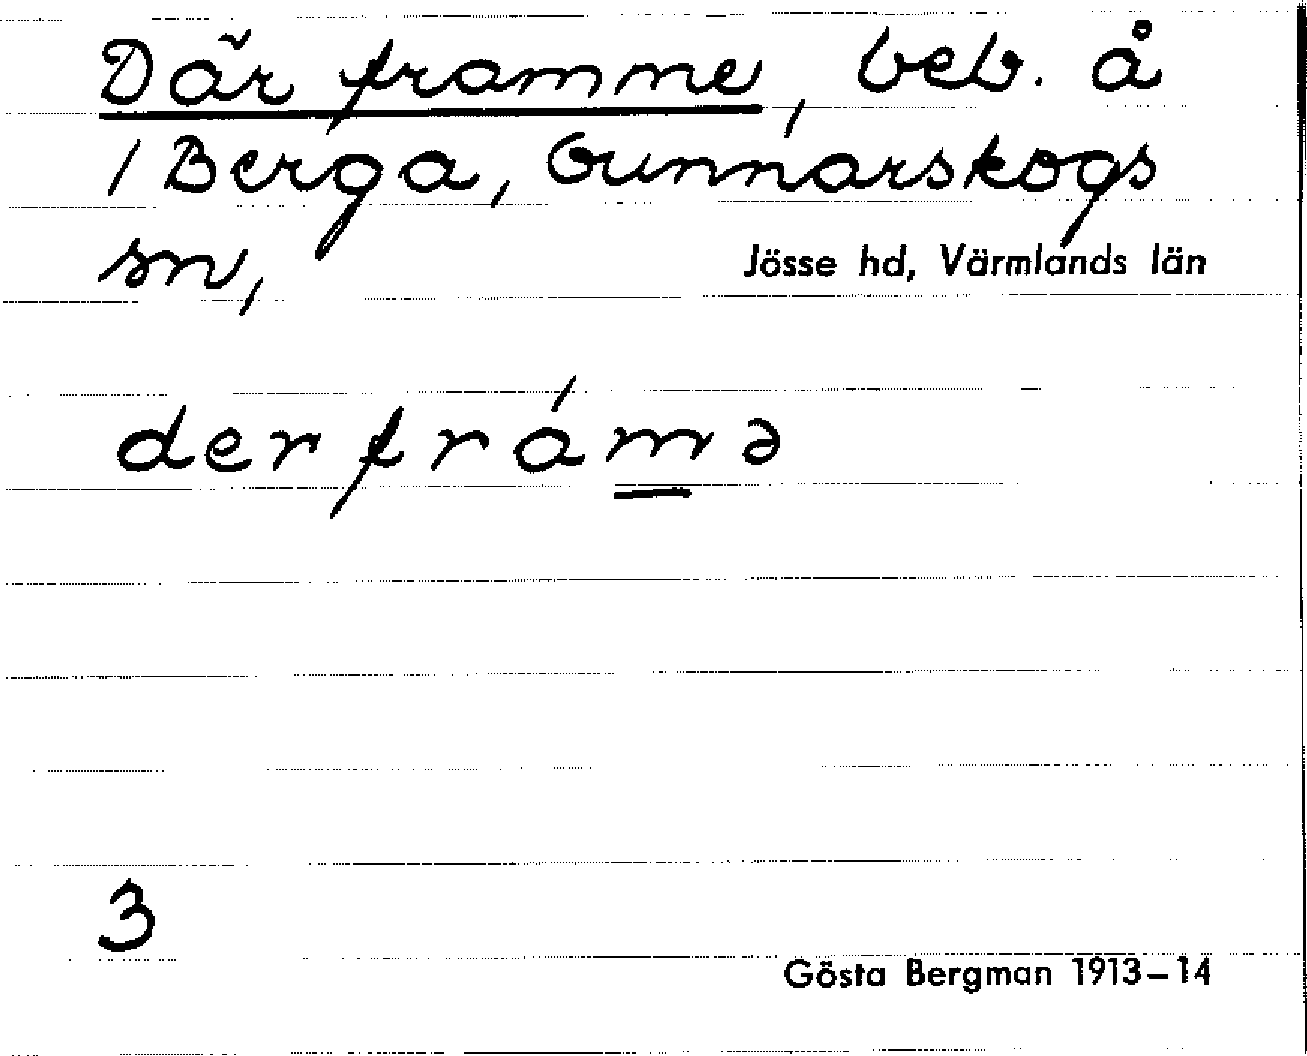 Där framme, beb. å
1 Berga, Gunnarskogs
sn,
Jösse hd, Värmlands län
derframə
3
Gösta Bergman 1913–14